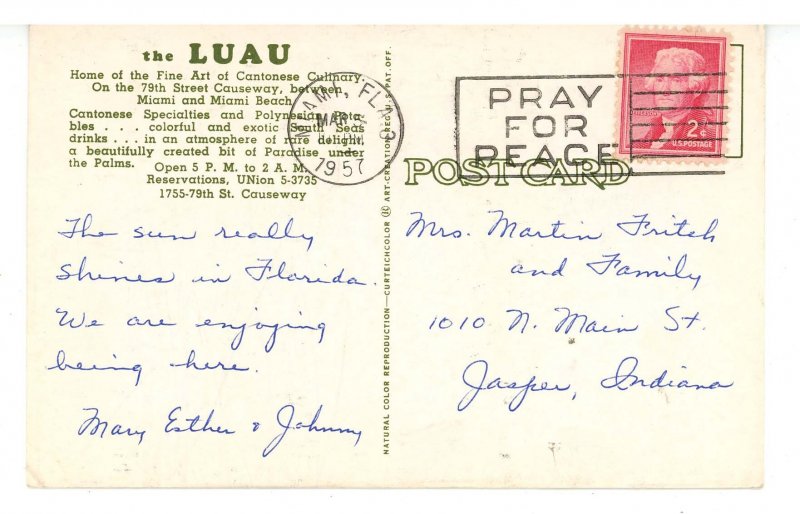 the LUAU
Home of the Fine Art of Cantonese Culinary.
On the 79th Street Causeway, between
Miami and Miami Beach
Cantonese Specialties and Polynesian Pota-
bles . . . colorful and exotic South Seas
drinks . . . in an atmosphere of rare delight,
a beautifully created bit of Paradise under
the Palms.
Open 5 P. M. to 2 A. M.
Reservations, UNion 5-3735
1755-79th St. Causeway
The sun really
shines in Florida.
We are enjoying
being here.
Mary Esther & Johnny
NATURAL COLOR REPRODUCTION—CURTEICHCOLOR ART-CREATION REG. U. S. PAT. OFF.
MIAMI, FLA
MAR
1957
PRAY
FOR
PEACE
2¢
U.S. POSTAGE
POST CARD
Mrs. Martin Fritch
and Family
1010 N. Main St.
Jasper, Indiana